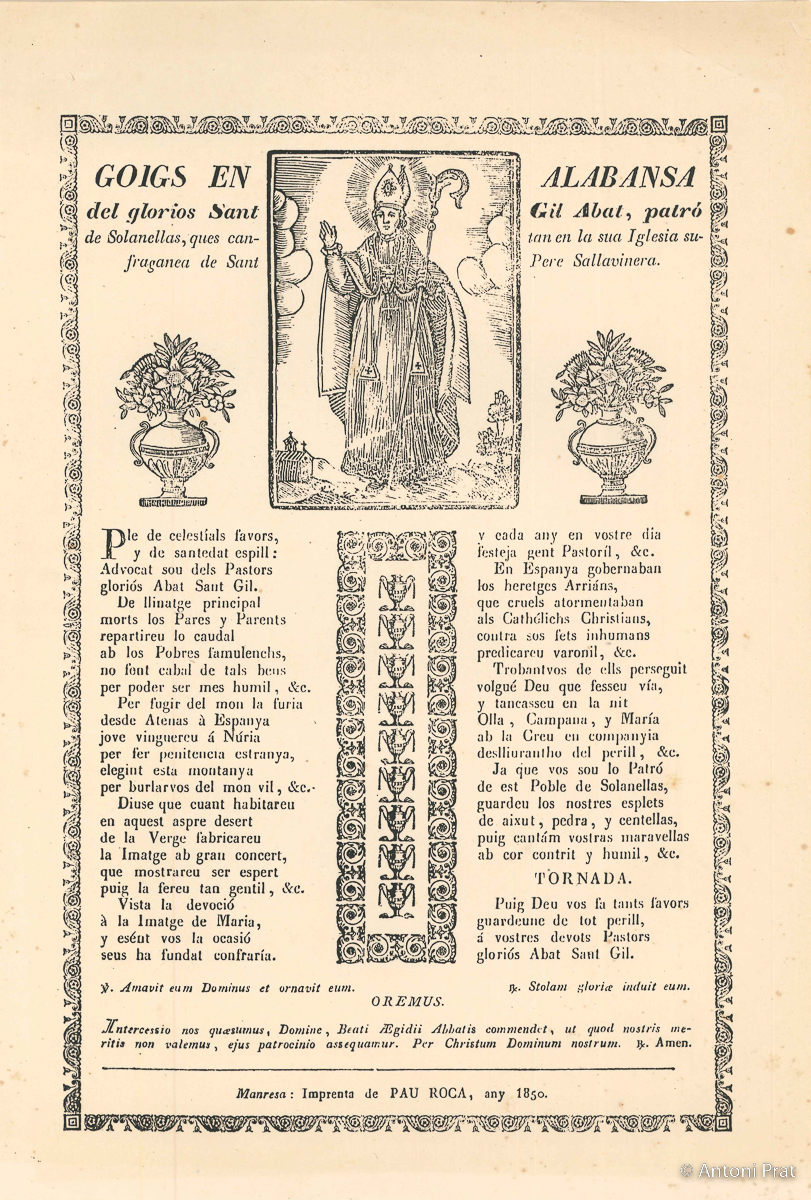 GOIGS EN ALABANSA
del glorios Sant Gil Abat, patró
de Solanellas, ques can- tan en la sua Iglesia su-
fraganea de Sant Pere Sallavinera.
Ple de celestials favors,
y de santedat espill:
Advocat sou dels Pastors
gloriós Abat Sant Gil.
De llinatge principal
morts los Pares y Parents
repartireu lo caudal
ab los Pobres famulenchs,
no font cabal de tals bens
per poder ser mes humil, &c.
Per fugir del mon la furia
desde Atenas à Espanya
jove vinguereu á Núria
per fer penitencia estranya,
elegint esta montanya
per burlarvos del mon vil, &c.
Diuse que cuant habitareu
en aquest aspre desert
de la Verge fabricareu
la Imatge ab gran concert,
que mostrareu ser espert
puig la fereu tan gentil, &c.
Vista la devoció
à la Imatge de Maria,
y esént vos la ocasió
seus ha fundat confraría.
y cada any en vostre dia
festeja gent Pastoríl, &c.
En Espanya gobernaban
los heretges Arriáns,
que cruels atormentaban
als Cathólichs Christians,
contra sos fets inhumans
predicareu varonil, &c.
Trobantvos de ells perseguit
volgué Deu que fesseu vía,
y tancasseu en la nit
Olla, Campana, y María
ab la Creu en companyia
deslliurantho del perill, &c.
Ja que vos sou lo Patró
de est Poble de Solanellas,
guardeu los nostres esplets
de aixut, pedra, y centellas,
puig cantám vostras maravellas
ab cor contrit y humil, &c.
TORNADA.
Puig Deu vos fa tants favors
guardeune de tot perill,
á vostres devots Pastors
gloriós Abat Sant Gil.
℣. Amavit eum Dominus et ornavit eum. ℟. Stolam gloriæ induit eum.
OREMUS.
Intercessio nos quæsumus, Domine, Beati Ægidii Abbatis commendet, ut quod nostris me-
ritis non valemus, ejus patrocinio assequamur. Per Christum Dominum nostrum. ℟. Amen.
Manresa: Imprenta de PAU ROCA, any 1850.
© Antoni Prat